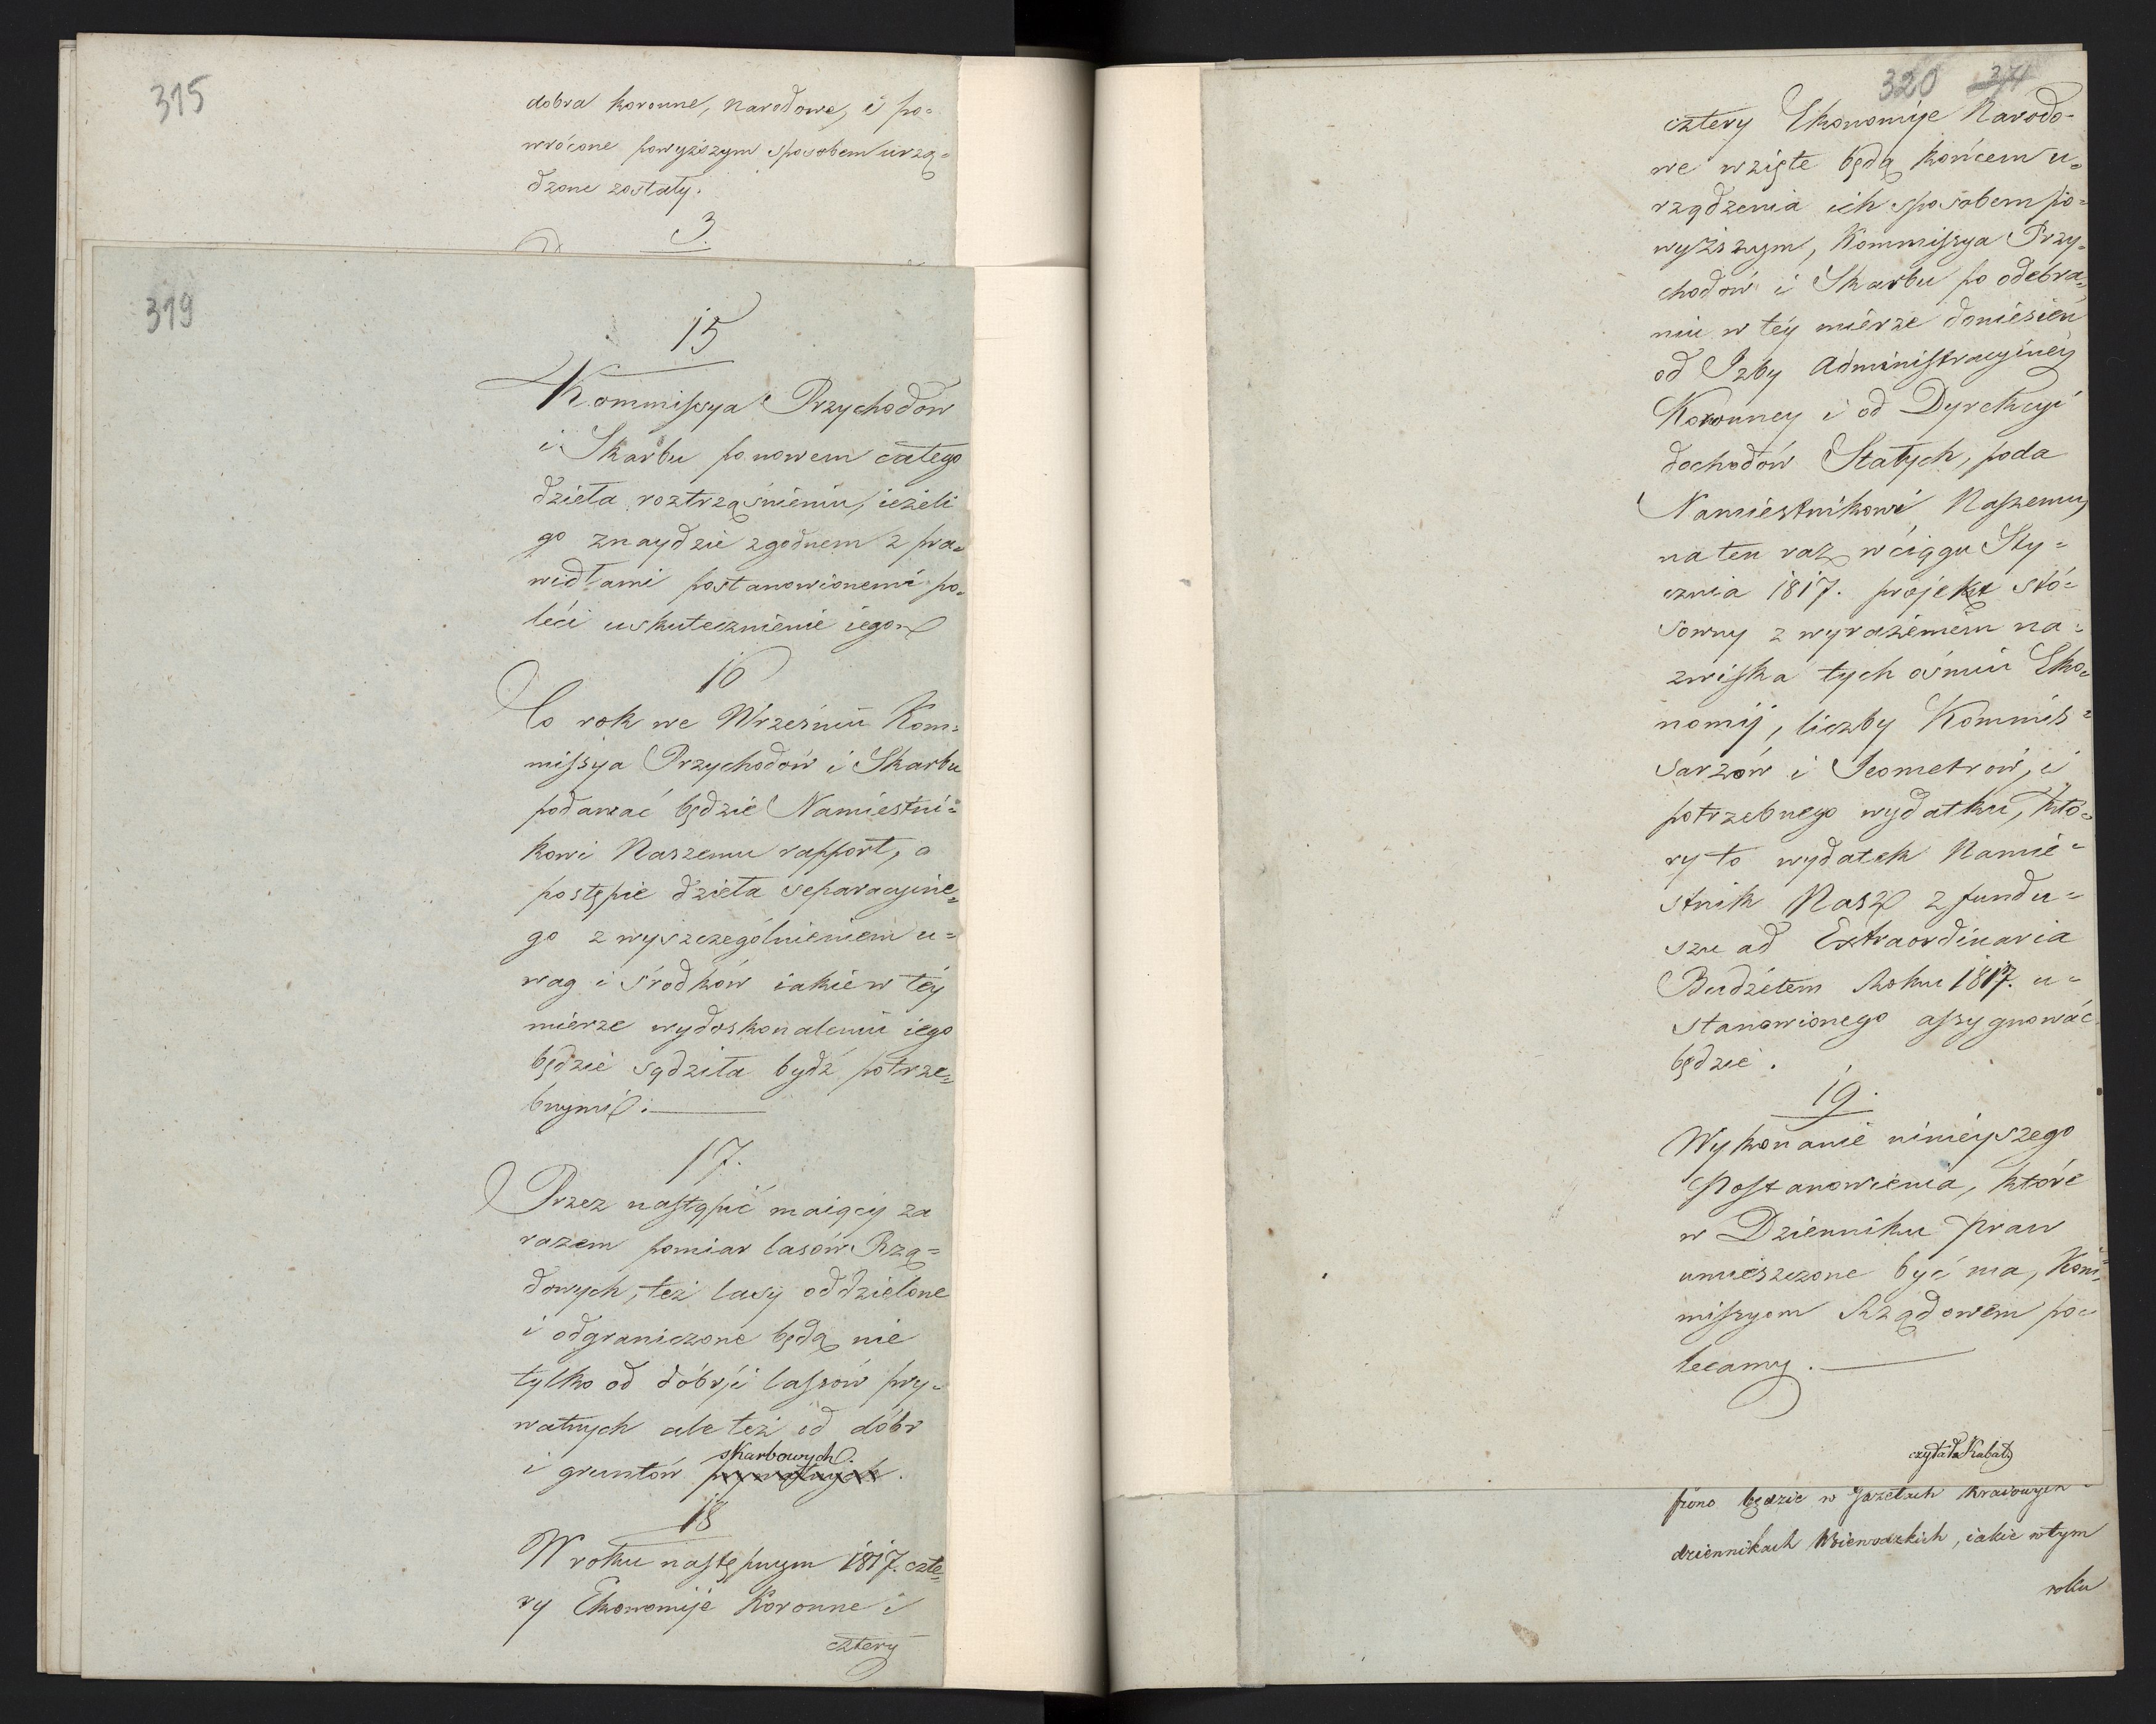 315
dobra koronne, narodowe, i po=
wrócone powyższym sposobem urzą=
dzone zostały.
3.
319
15
Kommissya Przychodów
i Skarbu ponowem całego
dzieła roztrząśnieniu, ieżeli
go znaydzie zgodnem z pra=
widłami postanowionemi po=
leći uskutecznienie iego
16
Co rok we Wrześniu Kom=
missya Przychodów i Skarbu
podawać będzie Namiestni=
kowi Naszemu rapport, o
postępie dzieła separacyine=
go z wyszczególnieniem u=
wag i środków iakie w téy
mierze wydoskonaleniu iego
będzie sądziła bydź potrze=
bnymi.
17.
Przez nastąpić maiący za
razem pomiar lasów Rzą=
dowych, też lasy oddzielone
i odgraniczone będą nie
tylko od dóbr i lassów pry=
watnych ale też od dóbr
skarbowych.
i gruntów prywatnych.
18
W roku następnym 1817. czte=
ry Ekonomije Koronne i
cztery
320 371
cztery Ekonomije Narodo-
we wzięte będą końcem u=
rządzenia ich sposobem po=
wyższym, Kommissya Przy=
chodów i Skarbu po odebra=
niu w téy mierze doniesień
od Izby Administracyinéy
Koronney i od Dyrekcyi
dochodów Stałych, poda
Namiestnikowi Naszemu,
na ten raz w ciągu Sty=
cznia 1817. projekt stó=
sowny z wyrażeniem na=
zwiska tych ośmiu Eko=
nomij, liczby Kommis=
sarzów i Jeometrów, i
potrzebnego wydatku, któ=
ry to wydatek Namie=
stnik Nasz z fundu=
szu ad Extraordinaria
Budżetem Roku 1817. u=
stanowionego assygnować
będzie.
19.
Wykonanie ninieyszego
Postanowienia, które
w Dzienniku praw
umieszczone być ma, Kom=
missyom Rządowem po=
lecamy.
czytał Kabat
będzie w Gazetach Kraiowych
dziennikach Woiewodzkich, iakie w tym
roku